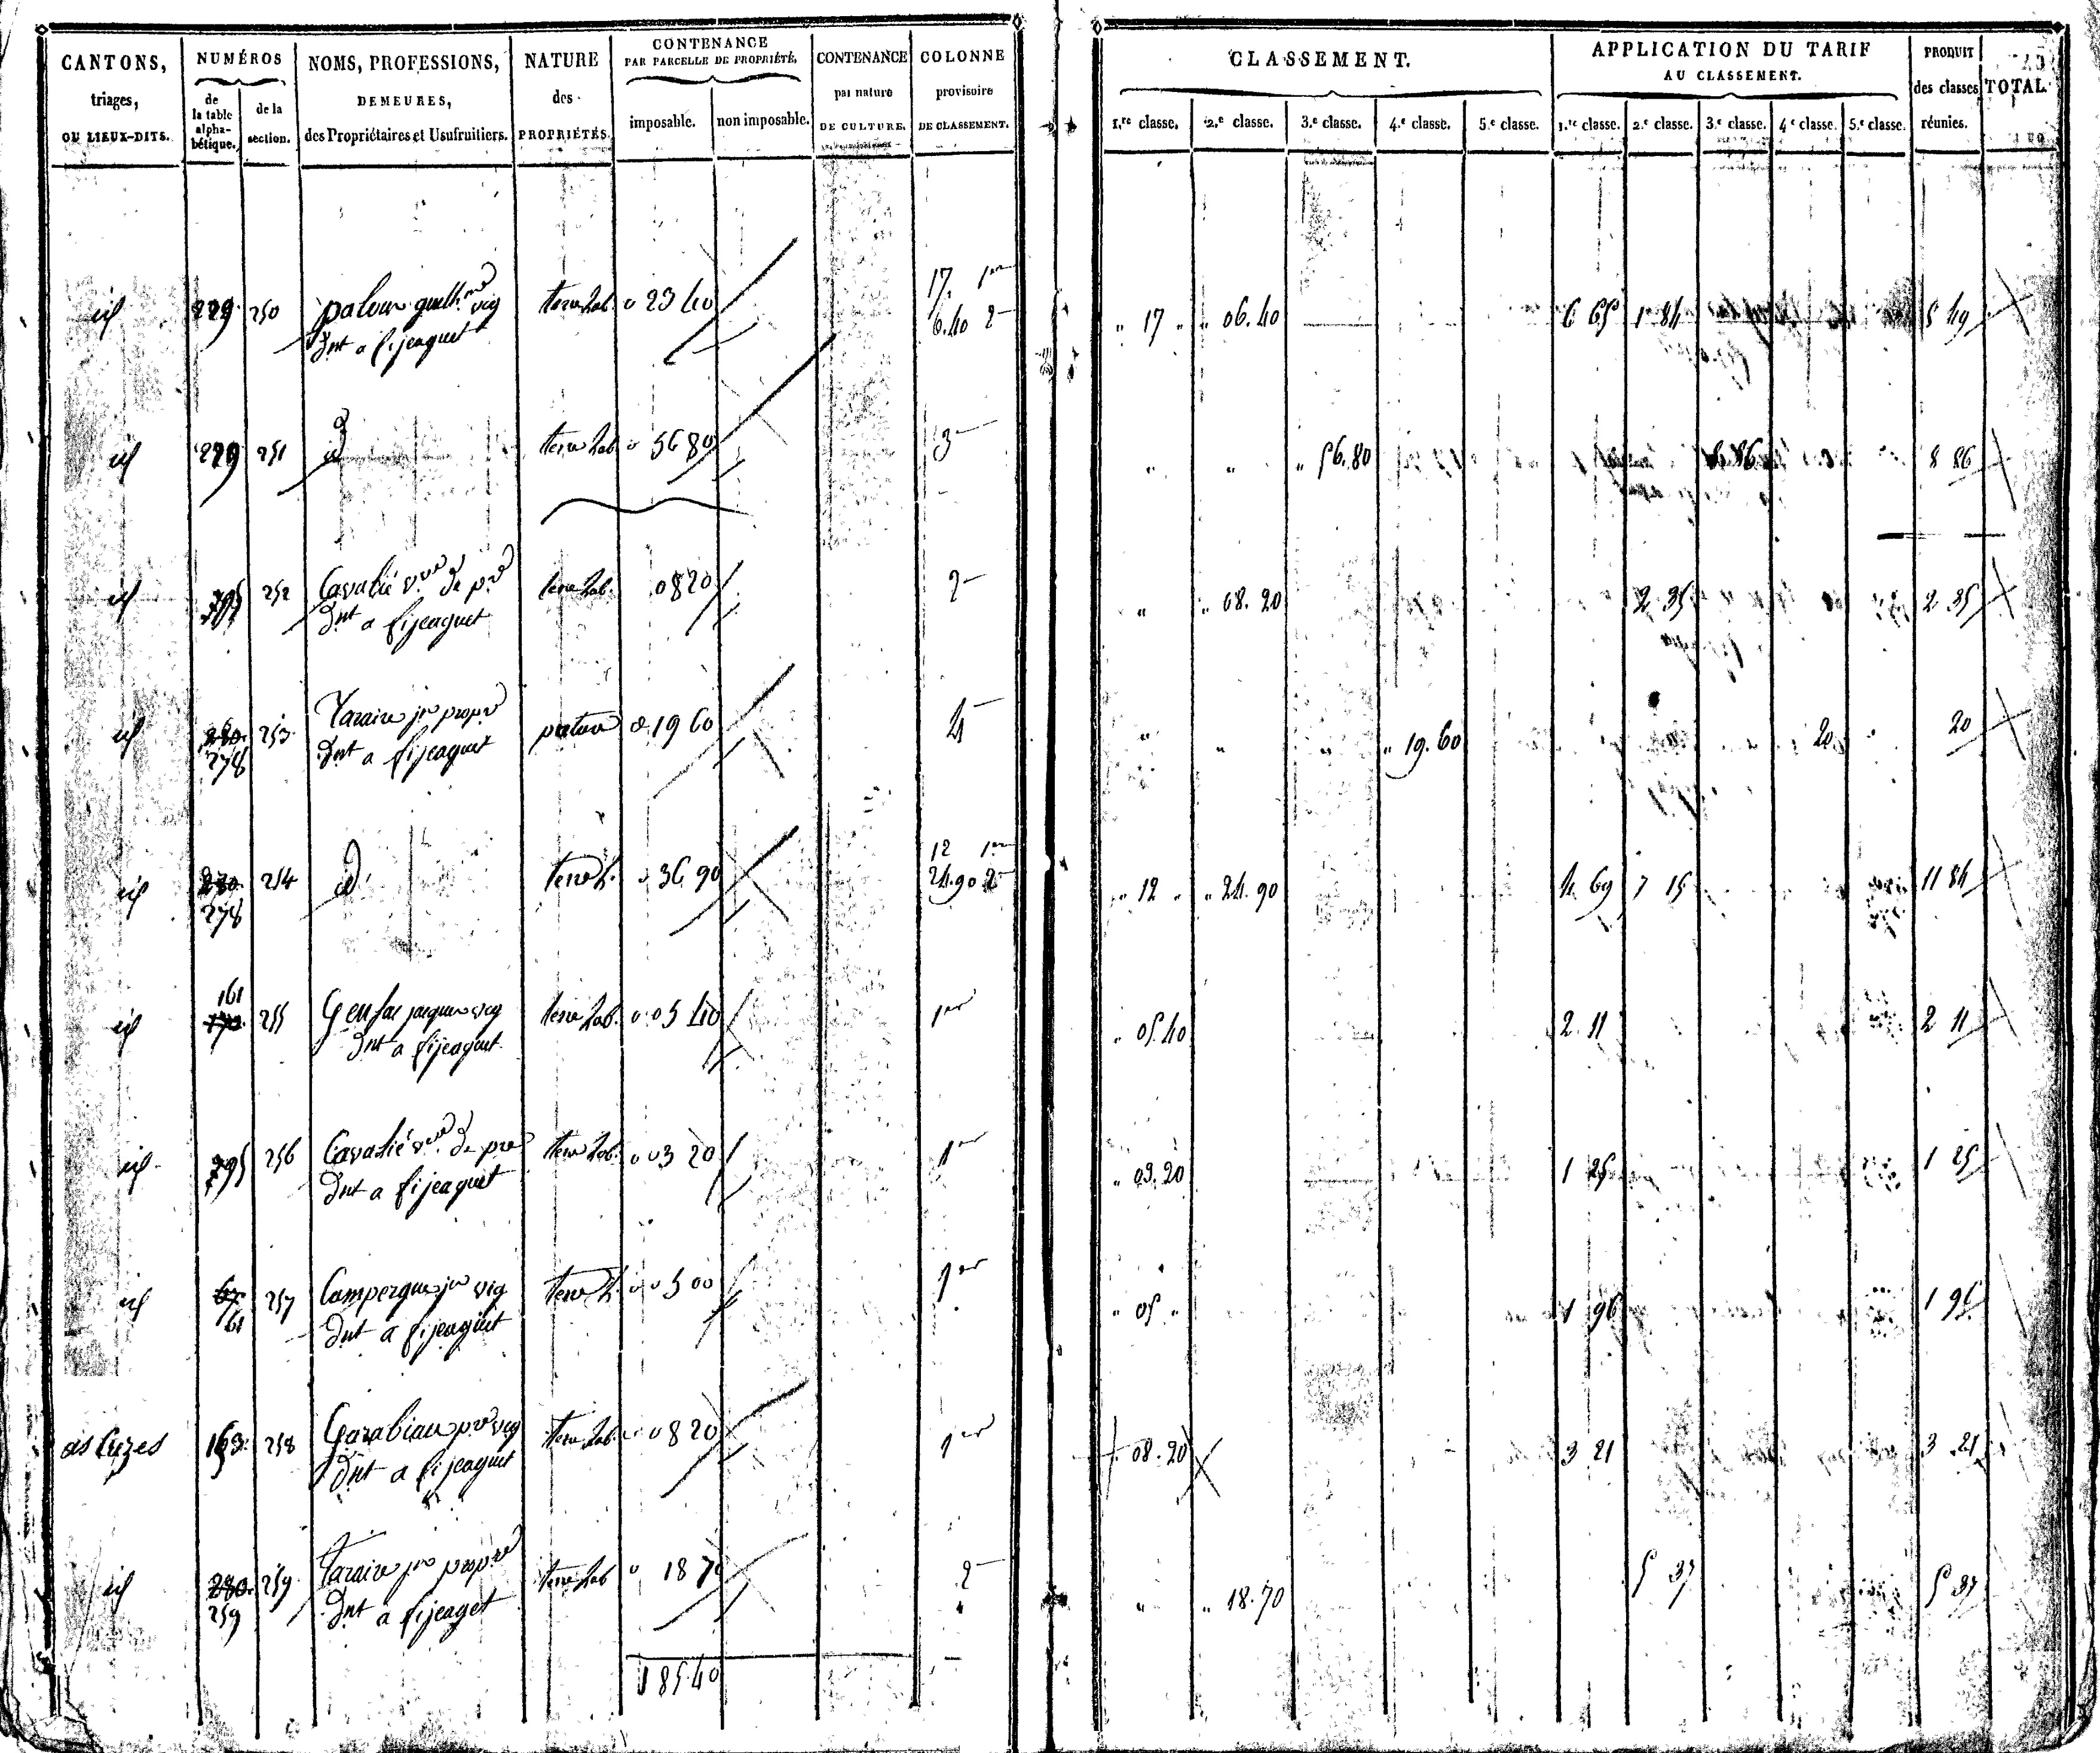 CANTONS, triages, OU LIEUX-DITS.
NUMÉROS
de la table alpha-bétique.
de la section.
NOMS, PROFESSIONS, DEMEURES, des Propriétaires et Usufruitiers.
NATURE des PROPRIÉTÉS.
CONTENANCE PAR PARCELLE DE PROPRIÉTÉ,
imposable.
non imposable.
CONTENANCE par nature DE CULTURE.
COLONNE provisoire DE CLASSEMENT.
CLASSEMENT.
1.re classe. 2.e classe. 3.e classe. 4.e classe. 5.e classe.
APPLICATION DU TARIF AU CLASSEMENT.
1.re classe. 2.e classe. 3.e classe. 4.e classe. 5.e classe.
PRODUIT des classes réunies.
TOTAL.
229 250 terre lab. 0 23 40 17. 1re
Dnt a fijeaguet 6.40 2
" 17 " " 06.40 6 65 1 84 8 49
229 251 id terre lab. 0 56 80 3
" " " 56.80 8 86 8 86
295 252 Cavalié v.ve de p.re terre lab. 08 20 2
Dnt a fijeaguet
" " 08.20 2 35 2 35
280 253 Taraire jn propre pature 0 19 60 4
278 Dnt a fijeaguet
" " " " 19.60 20 20
280 254 id terre l. 0 36 90 12 1re
278 24.90 2
" 12 " " 24.90 4 69 7 15 11 84
161
170 255 Gensac jacques vig terre lab. 0 05 40 1er
Dnt a fijeaguet
" 05.40 2 11 2 11
295 256 Cavalié v.ve de pre terre lab. 0 03 20 1er
Dnt a fijeaguet
" 03.20 1 25 1 25
67 257 vig terre l. 0 05 00 1er
61 Dnt a fijeaguet
" 05 " 1 96 1 96
as Cuzes 163 258 Garabiau pre vig terre lab. 0 08 20 1er
Dnt a fijeaguet
" 08.20 3 21 3 21
id 280 259 Taraire jn propre terre lab 0 18 70 2
259 Dnt a fijeaget
" " 18.70 5 37 5 37
1 85 40